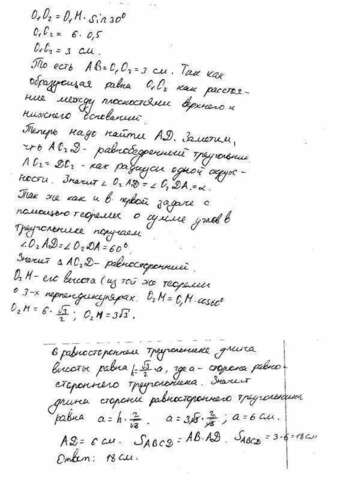 O₁O₂ = O₁M · sin 30°
O₁O₂ = 6 · 0,5
O₁O₂ = 3 см.
То есть AB = O₁O₂ = 3 см. Так как
образующая равна O₁O₂ как расстоя-
ние между плоскостями верхнего и
нижнего оснований.
Теперь надо найти AD. Заметим,
что AO₂D - равнобедренный треугольник
AO₂ = DO₂ - как радиусы одной окруж-
ности. Значит ∠O₂AD = ∠O₂DA = α.
Так же как и в первой задаче с
помощью теоремы о сумме углов в
треугольнике получаем.
∠O₂AD = ∠O₂DA = 60°.
Значит ΔAO₂D - равносторонний.
O₂M - его высота (из той же теоремы
о 3-х перпендикулярах. O₂M = O₁M · cos 60°
O₂M = 6 · √3/2 ; O₂M = 3√3.
В равностороннем треугольнике длина
высоты равна h = √3/2 · a, где a - сторона равно-
стороннего треугольника. Значит
длина стороны равностороннего треугольника
равна a = h · 2/√3. a = 3√3 · 2/√3 ; a = 6 см.
AD = 6 см. S_ABCD = AB · AD. S_ABCD = 3 · 6 = 18 см
Ответ: 18 см.